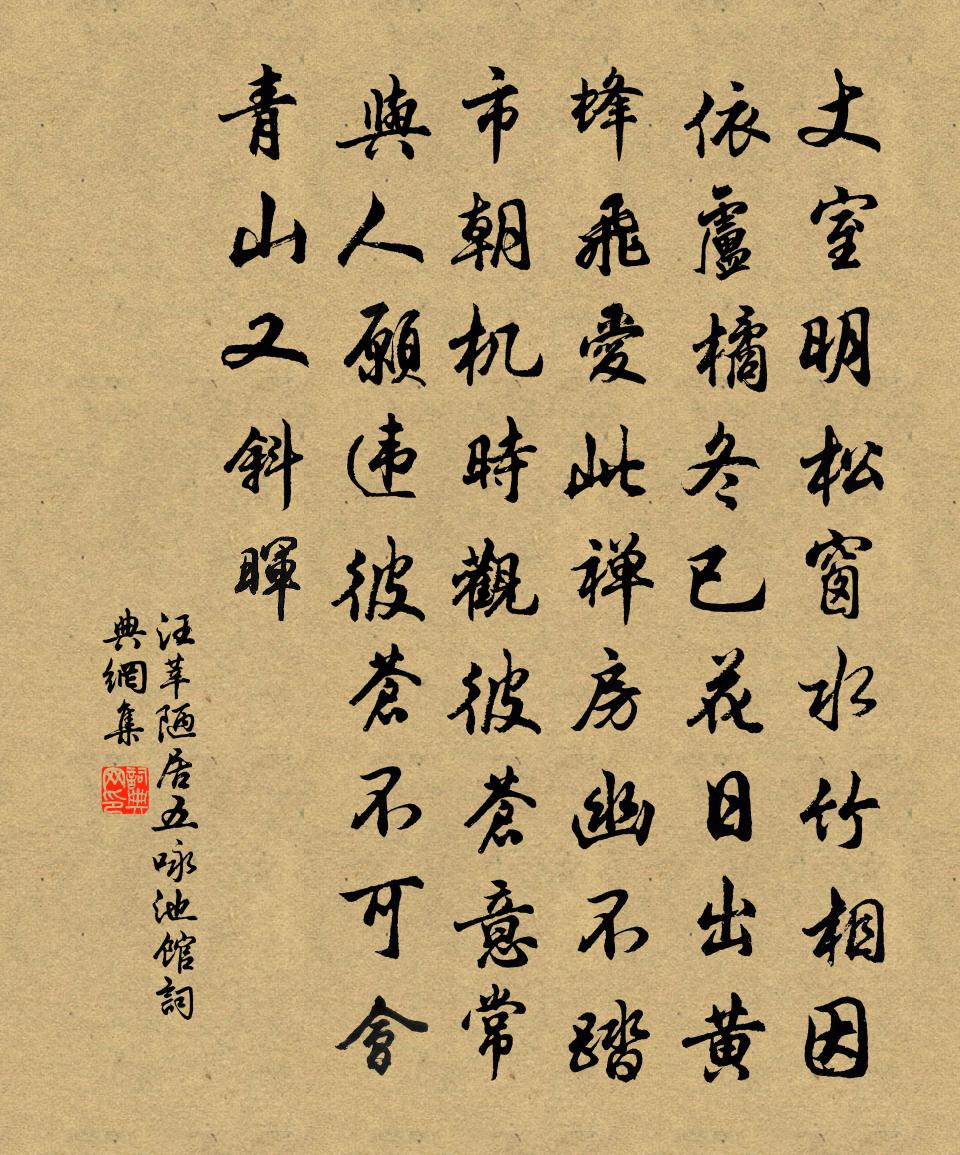 丈室明松窗水竹相因
依盧橘冬已花日出黄
蜂飛愛此禅房幽不踏
市朝机時觀彼蒼意常
與人願违彼蒼不可會
青山又斜暉
汪莘陋居五咏池馆詞
典網集
詞典网印